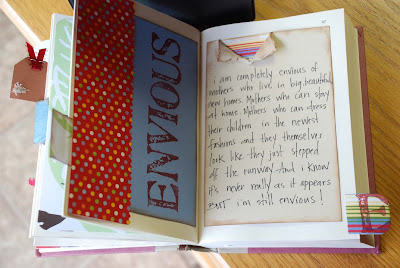 ENVIOUS
i am completely envious of
mothers who live in big, beautiful
new homes. Mothers who can stay
at home. Mothers who can dress
their children in the newest
fashions and they themselves
look like they just stepped
off the runway. And i know
it's never really as it appears
BUT i'm still envious!